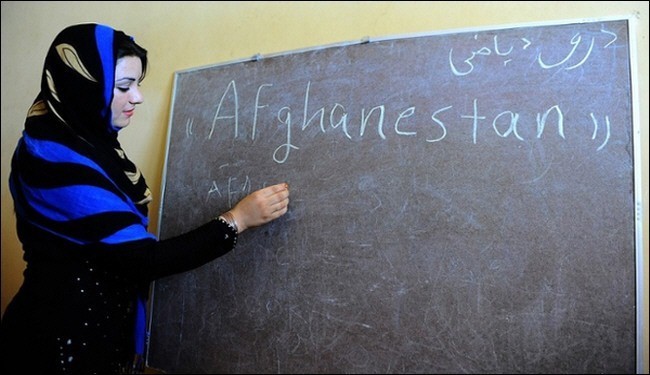 ریاضی
«Afghanestan»
AF